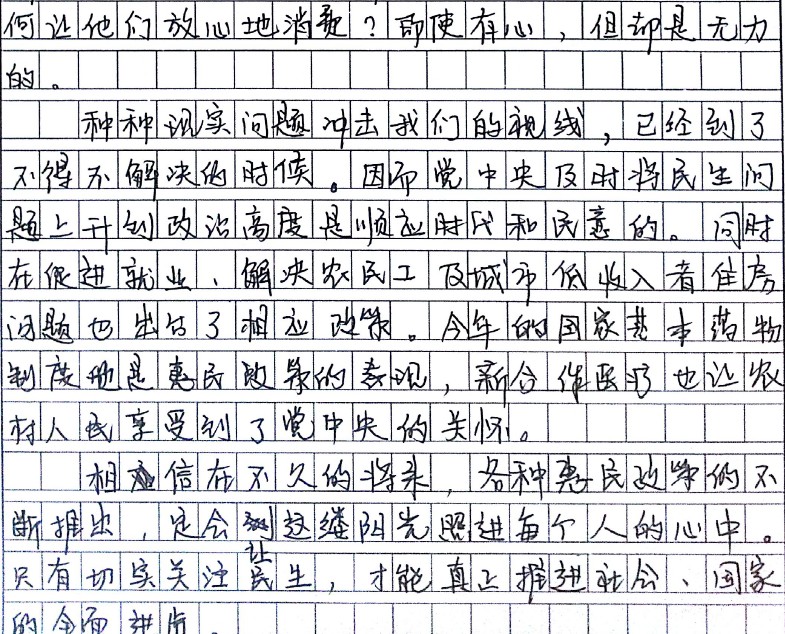 何让他们放心地消费？即使有心，但却是无力
的。
种种现实问题冲击我们的视线，已经到了
不得不解决的时候。因而党中央及时将民生问
题上升到政治高度是顺应时代和民意的。同时
在促进就业、解决农民工及城市低收入者住房
问题也出台了相应政策。今年的国家基本药物
制度也是惠民政策的表现，新合作医疗也让农
村人民享受到了党中央的关怀。
相信在不久的将来，各种惠民政策的不
断推出，定会让这缕阳光照进每个人的心中。
只有切实关注民生，才能真正推进社会、国家
的全面进步。